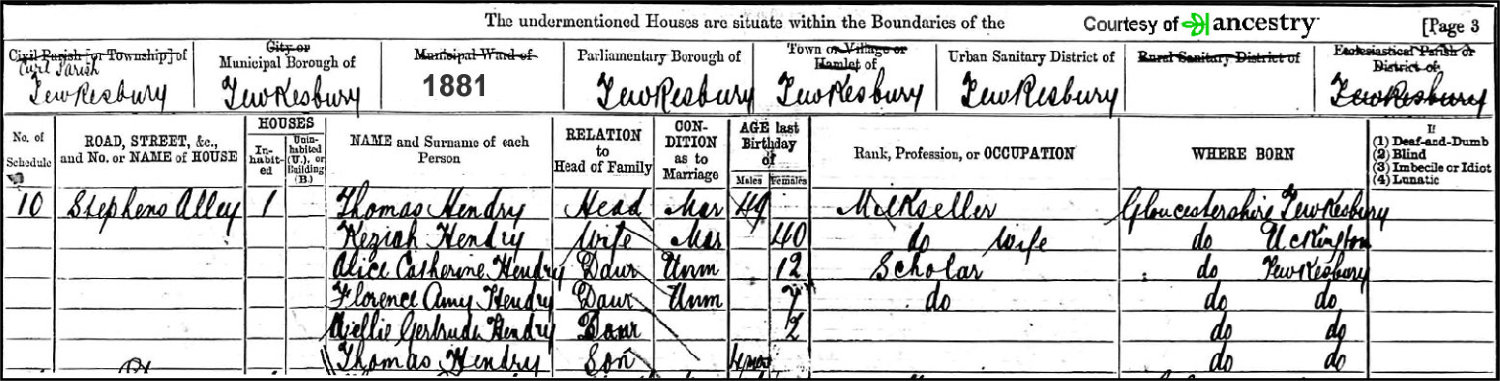 The undermentioned Houses are situate within the Boundaries of the Courtesy of ancestry [Page 3
Civil Parish [or Township] of City or Municipal Borough of Municipal Ward of Parliamentary Borough of Town or Village or Hamlet of Urban Sanitary District of Rural Sanitary District of Ecclesiastical Parish or District of
Civil Parish
Tewkesbury Tewkesbury 1881 Tewkesbury Tewkesbury Tewkesbury Tewkesbury
No. of Schedule ROAD, STREET, &c., and No. or NAME of HOUSE HOUSES In-habit-ed Unin-habited (U.), or Building (B.) NAME and Surname of each Person RELATION to Head of Family CON-DITION as to Marriage AGE last Birthday of Males Females Rank, Profession, or OCCUPATION WHERE BORN If
(1) Deaf-and-Dumb
(2) Blind
(3) Imbecile or Idiot
(4) Lunatic
10 Stephens Alley 1 Thomas Hendry Head Mar 49 Milkseller Gloucestershire Tewkesbury
Keziah Hendry Wife Mar 40 do Wife do Uckington
Alice Catherine Hendry Daur Unm 12 Scholar do Tewkesbury
Florence Amy Hendry Daur Unm 7 do do do
Nellie Gertrude Hendry Daur 2 do do
Thomas Hendry Son 4mos do do